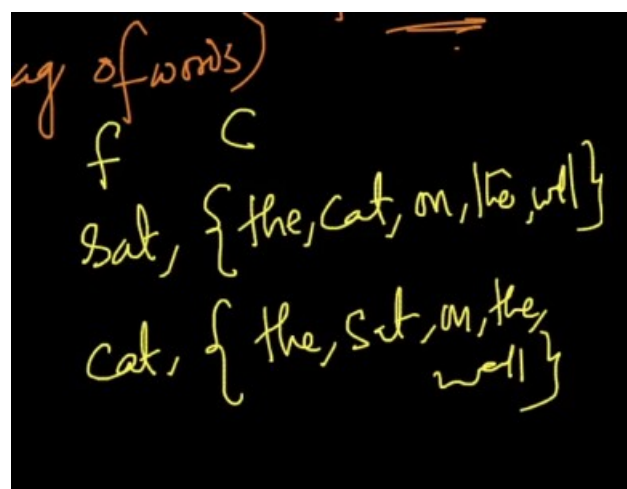 ag of words)
f C
sat, {the, cat, on, the, well}
cat, {the, sat, on, the,
well}